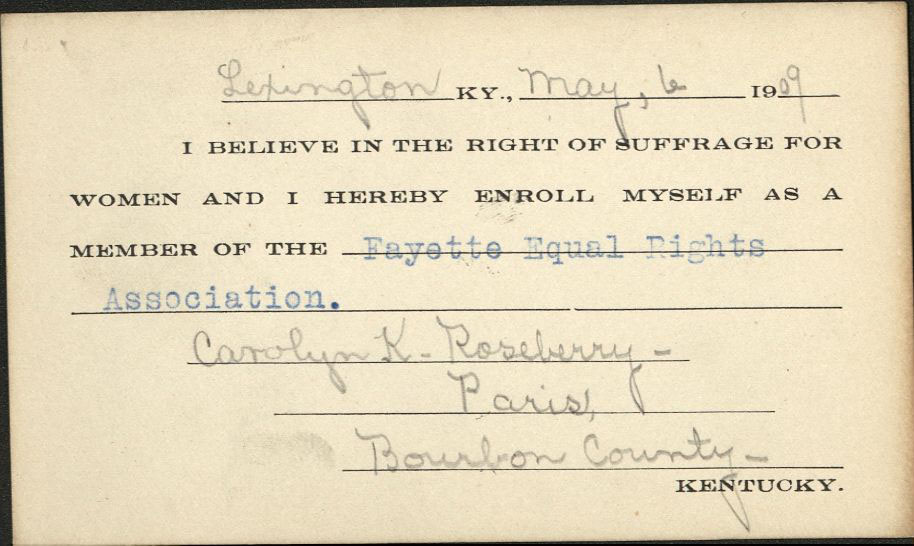 Lexington KY., May, 6 1909
I BELIEVE IN THE RIGHT OF SUFFRAGE FOR
WOMEN AND I HEREBY ENROLL MYSELF AS A
MEMBER OF THE Fayette Equal Rights
Association.
Carolyn K - Roseberry -
Paris,
Bourbon County -
KENTUCKY.